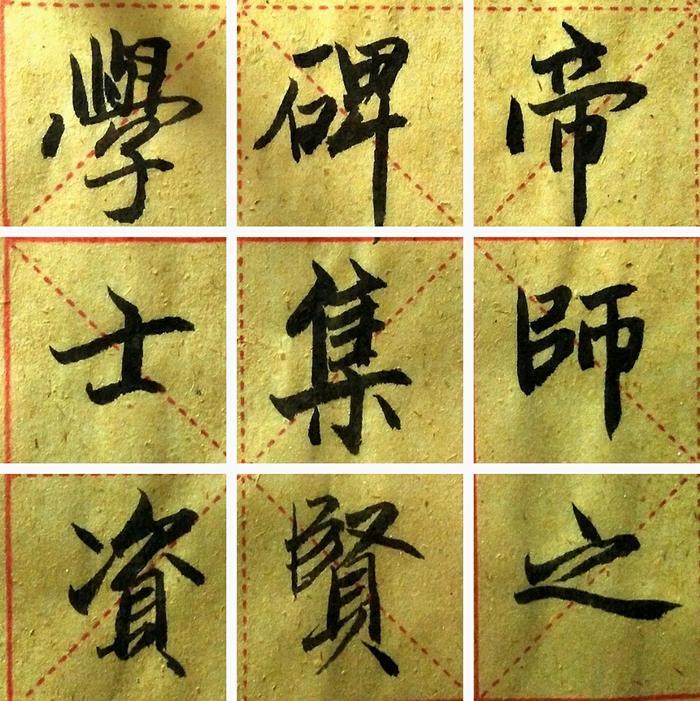 帝師之
碑集賢
學士資